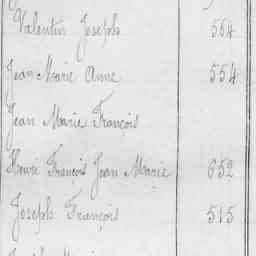 Valentin Joseph 564
Jean Marie Anne 554
Jean Marie François
Henri François Jean Marie 652
Joseph François 515